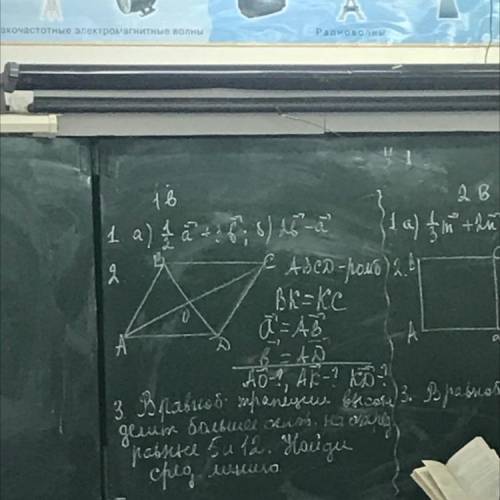 Низкочастотные электромагнитные волны
Радиоволны
1 В
1 а) 1/2 a⃗ + 3b⃗; б) 2b⃗ - a⃗
2. B C
A D O
ABCD-ромб
BK=KC
a⃗ = AB⃗
b⃗ = AD⃗
AO⃗-?, AK⃗-? KD⃗-?
3. В равноб. трапеции высота
делит большее осн. на отрез
равные 5 и 12. Найди
сред линию
2 В
1 а) 1/3 m⃗ + 2n
2. B
A
3. В равноб